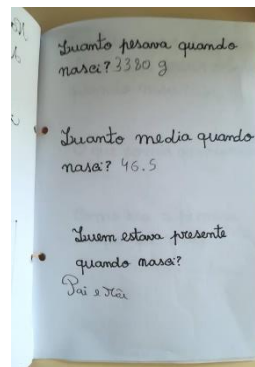 Quanto pesava quando
nasci? 3380 g
Quanto media quando
nasci? 46.5
Quem estava presente
quando nasci?
Pai e Mãe